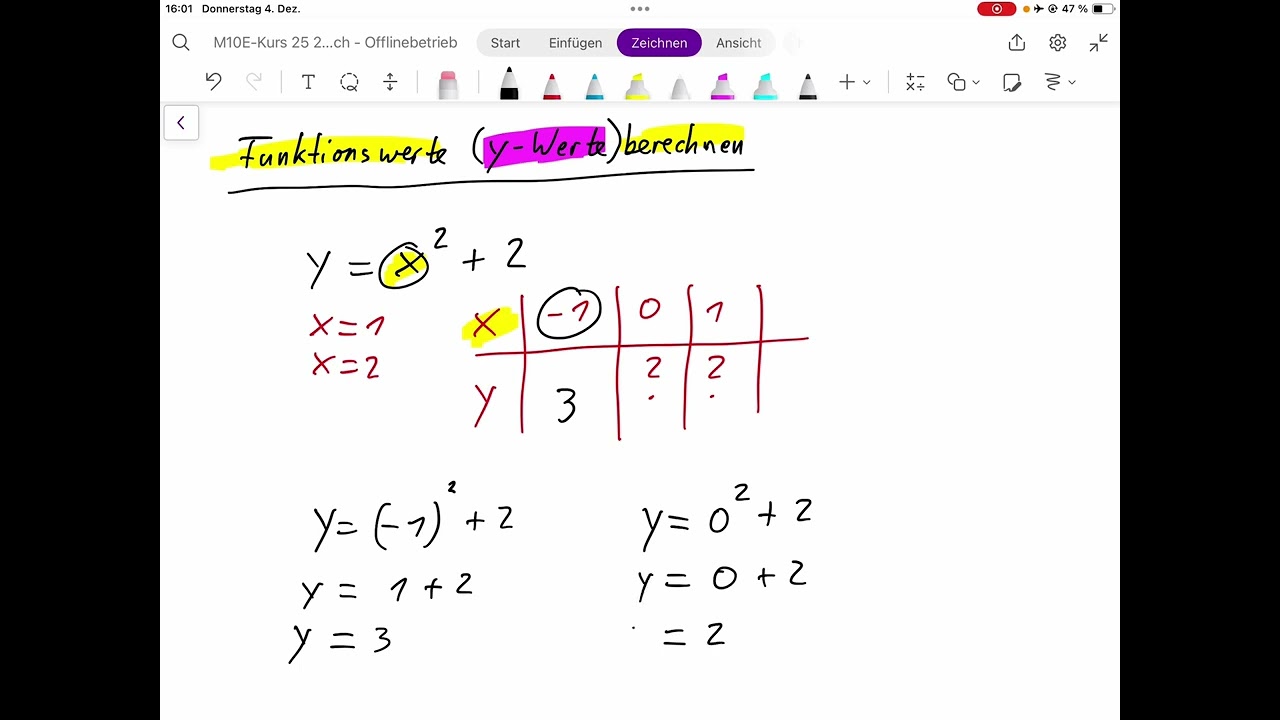 16:01 Donnerstag 4. Dez. 47 %
M10E-Kurs 25 2...ch - Offlinebetrieb Start Einfügen Zeichnen Ansicht
T
Funktionswerte (y-Werte) berechnen
y = x² + 2
x = 1
x = 2
x | -1 | 0 | 1
y | 3 | ? | ?
y = (-1)² + 2
y = 1 + 2
y = 3
y = 0² + 2
y = 0 + 2
= 2